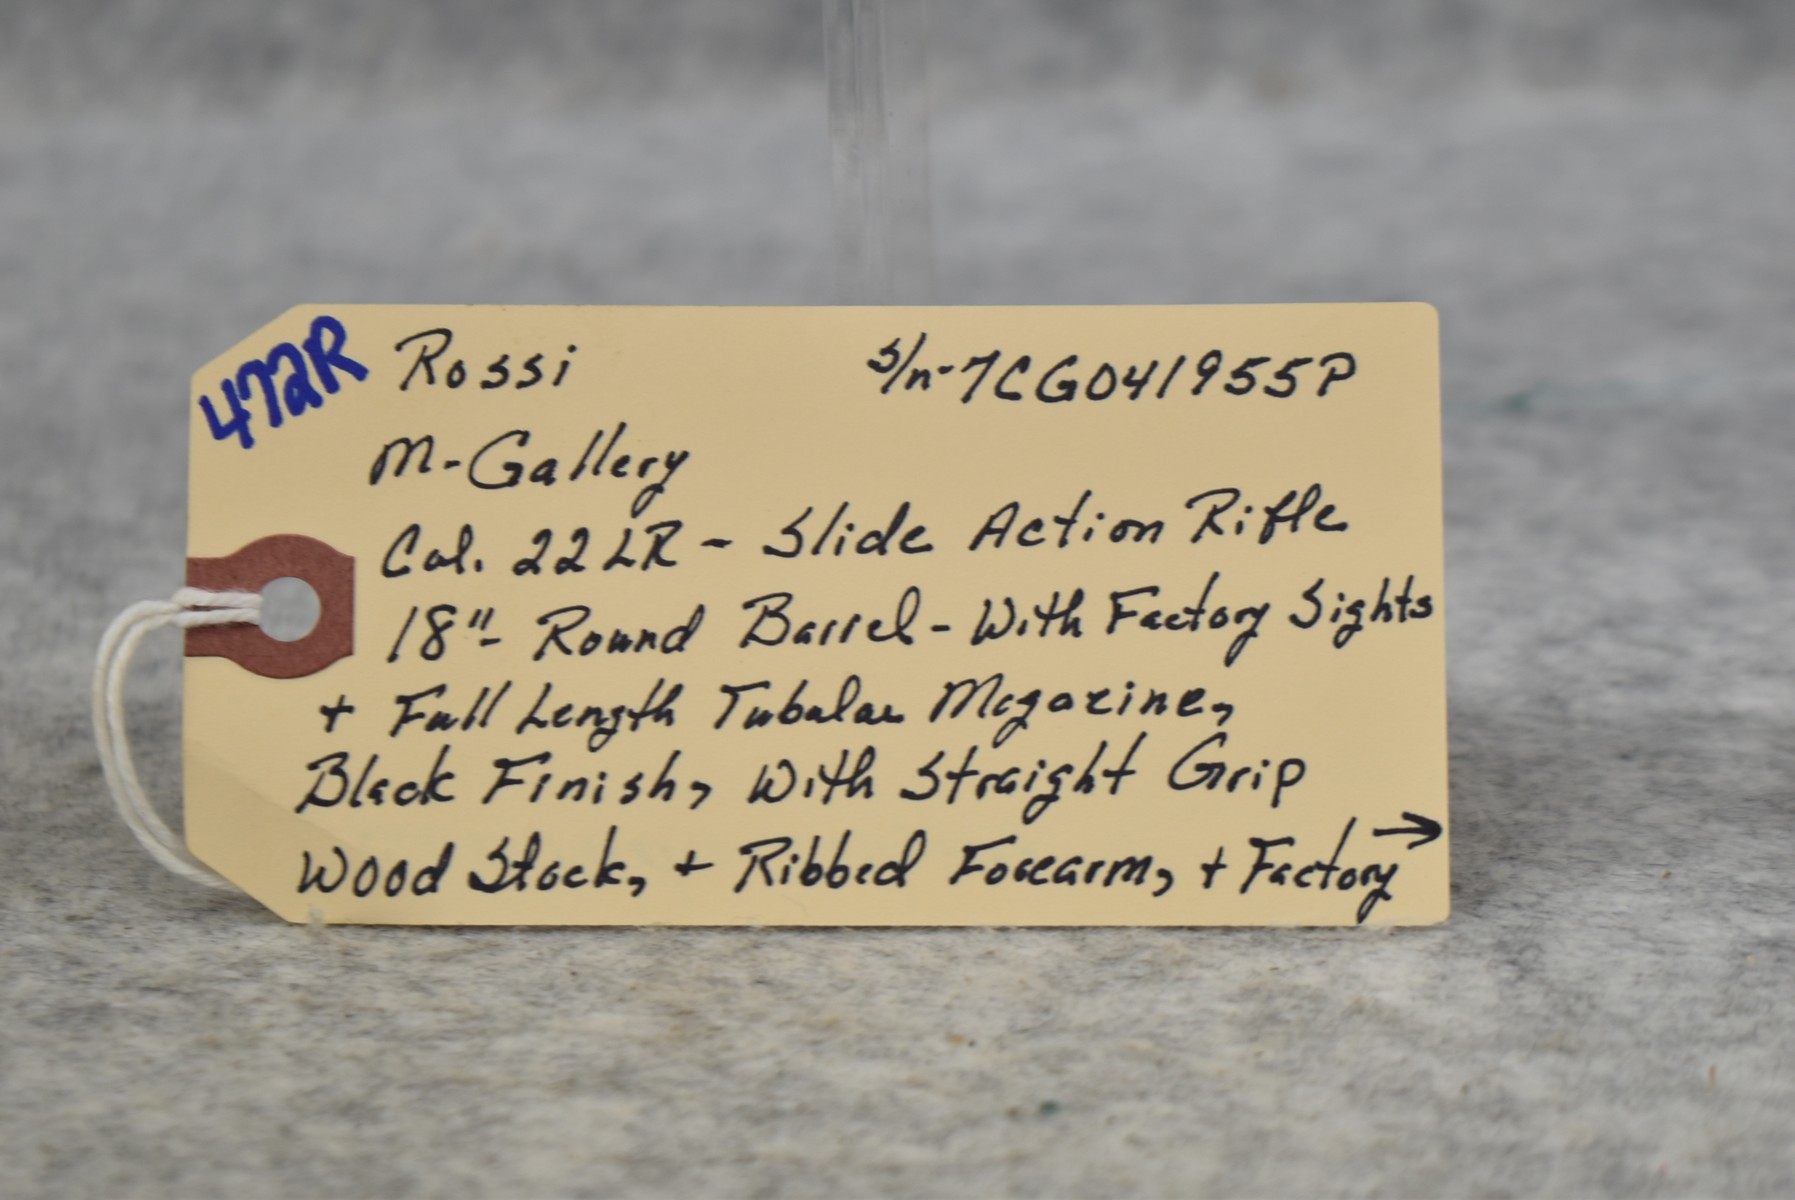 472R
Rossi s/n-7CG041955P
M-Gallery
Cal. 22LR - Slide Action Rifle
18"- Round Barrel - With Factory Sights
+ Full Length Tubular Magazine,
Black Finish, With Straight Grip
Wood Stock, + Ribbed Forearm, + Factory →